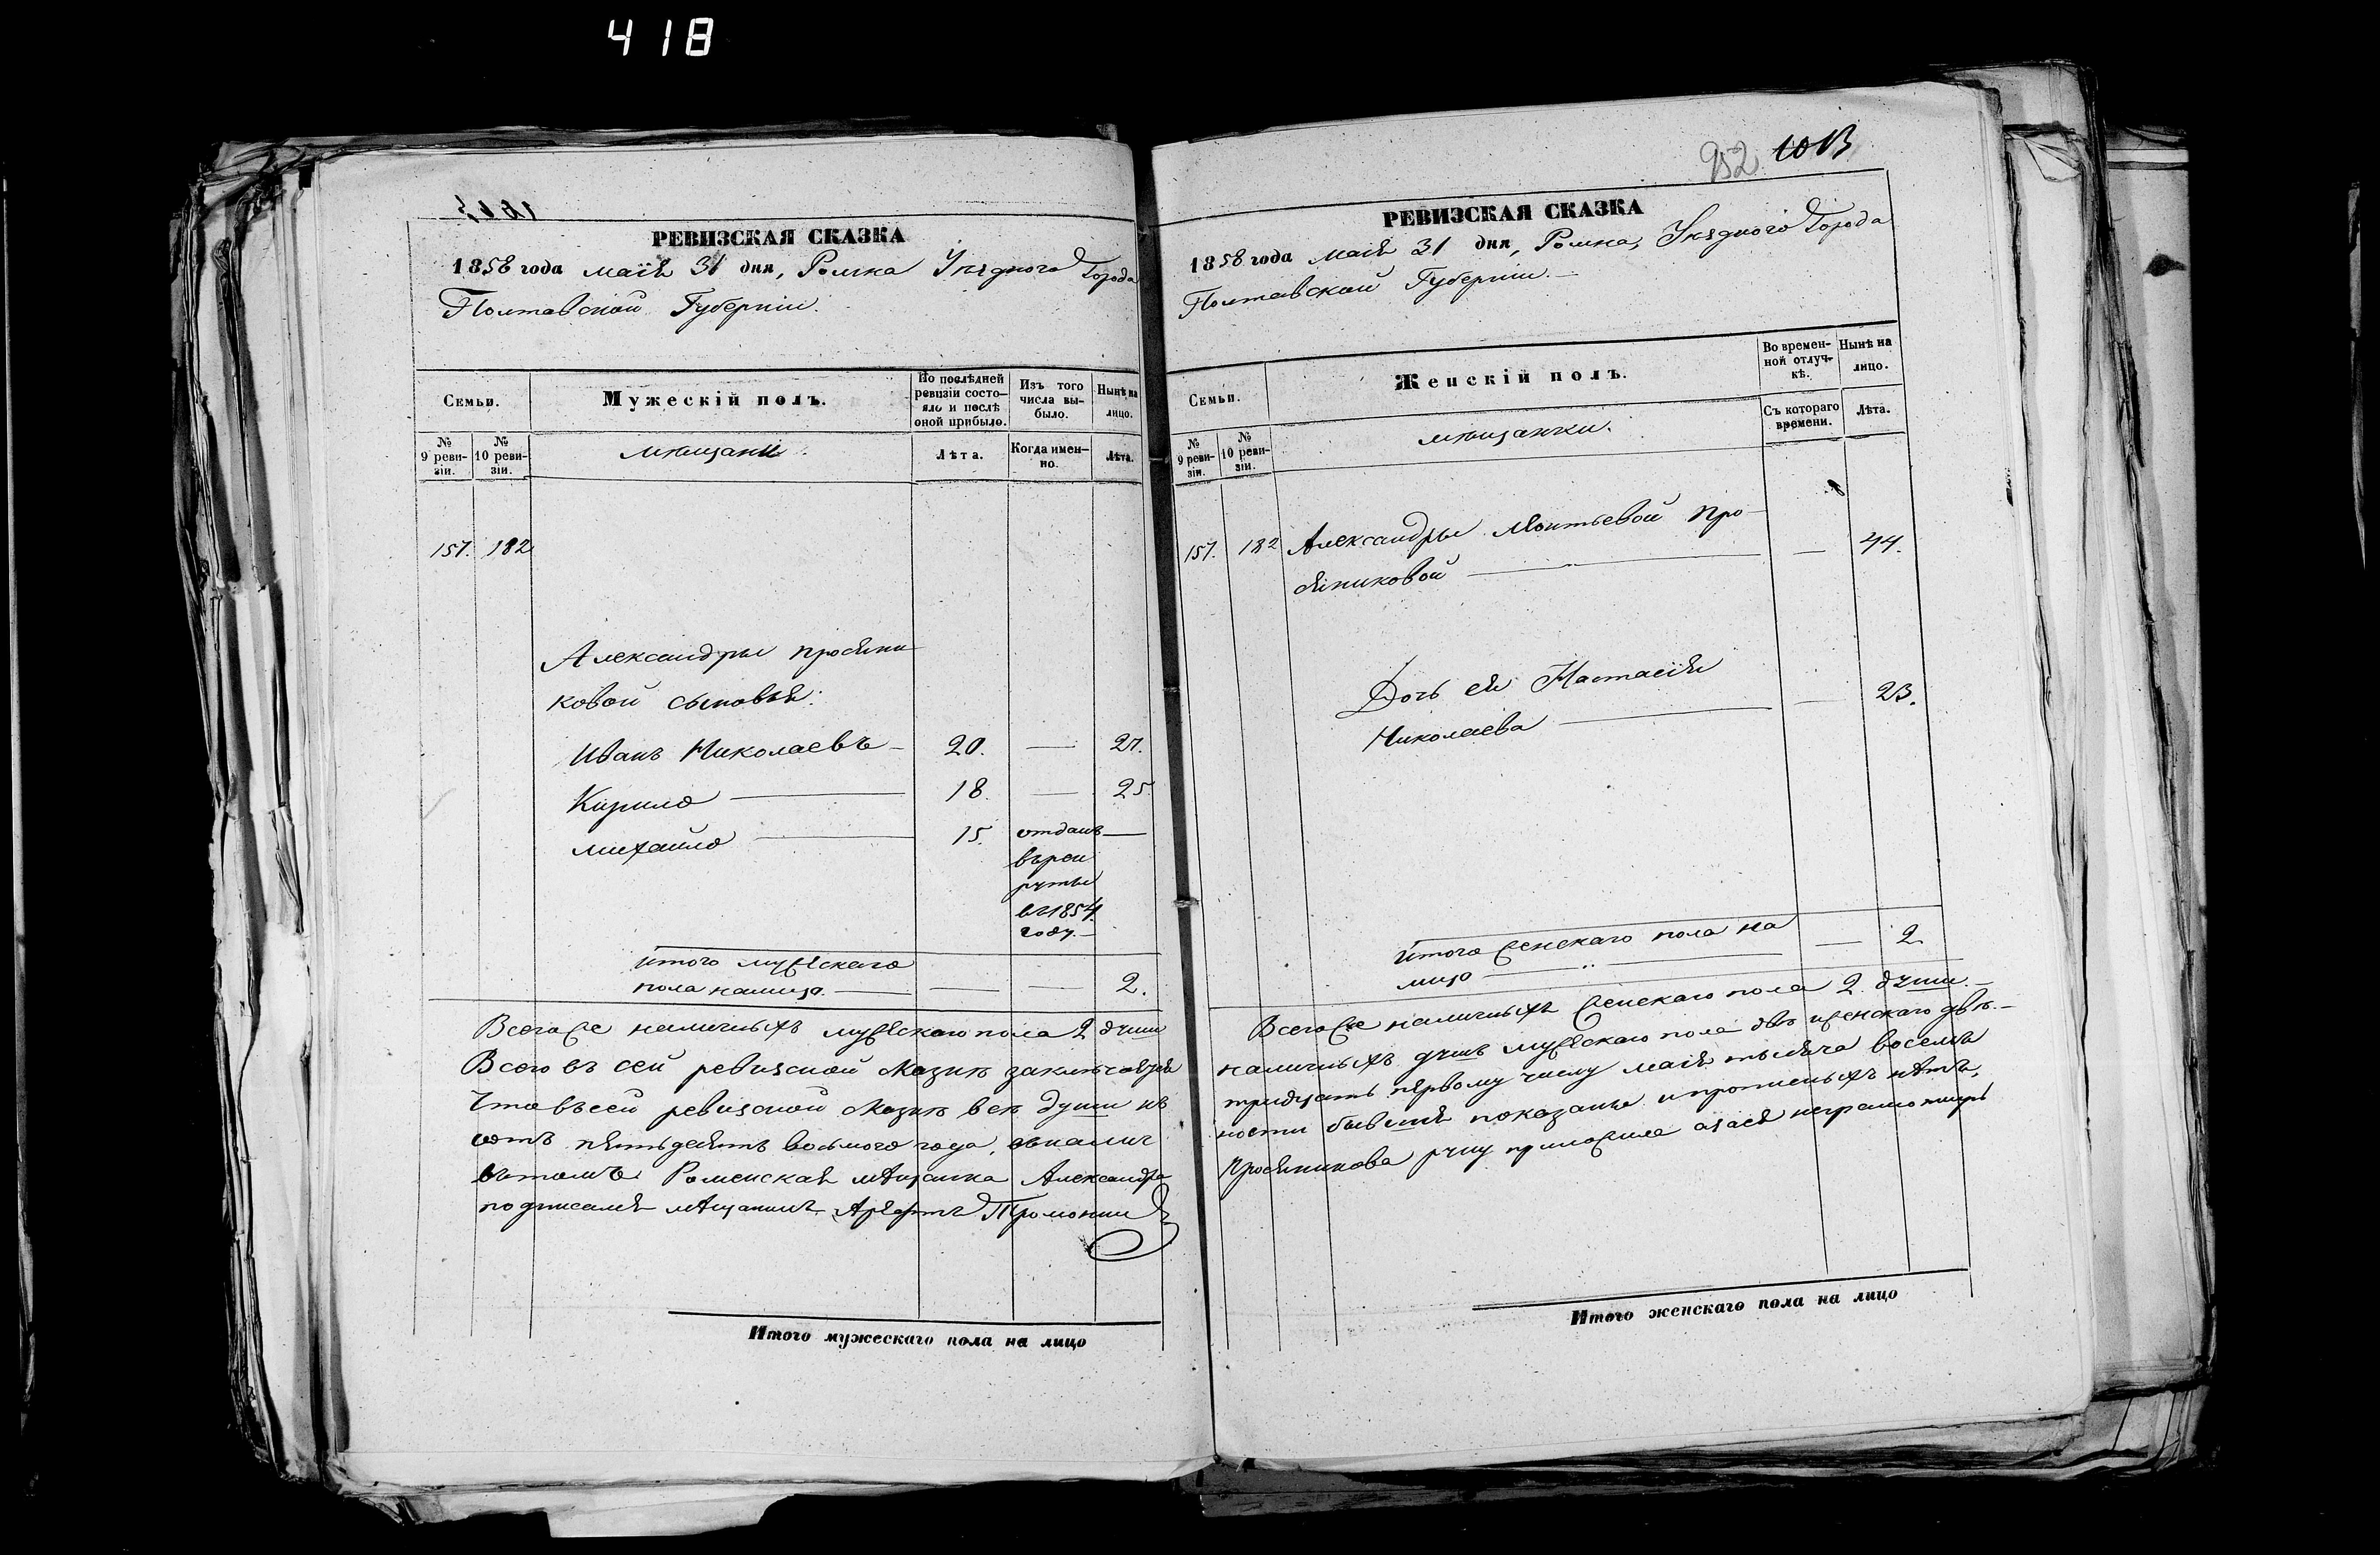 418
РЕВИЗСКАЯ СКАЗКА
1858 года маія 31 дня, Ромна Уѣзднаго Города
Полтавской Губерніи.
Семьи.
Мужескій полъ.
По послѣдней ревизіи состояло и послѣ оной прибыло.
Изъ того числа выбыло.
Нынѣ на лицо.
№ 9 ревизіи.
№ 10 ревизіи.
мѣщани.
Лѣта.
Когда именно.
Лѣта.
157. 182
Александры Просяни
ковой сыновья:
Иванъ Николаевъ 20. — 27.
Кирило — 18. — 25.
михайло — 15. отданъ —
врек
руты
въ 1854
году.
итого мужескаго
пола налицо. — — — 2.
Всего же наличныхъ мужескаго пола 2 души
Всего въ сей ревизской сказкѣ заключается
Что въ сей ревизской сказкѣ всѣ души къ
сотъ пятьдесятъ восьмого года, въ налич
въ томъ Роменская мѣщанка Александра
подписался мѣщанинъ
Итого мужескаго пола на лицо
952 1013
РЕВИЗСКАЯ СКАЗКА
1858 года маія 31 дня, Ромна, Уѣзднаго Города
Полтавской Губерніи. —
Семьи.
Женскій полъ.
Во временной отлучкѣ.
Нынѣ на лицо.
№ 9 ревизіи.
№ 10 ревизіи.
мѣщанки.
Съ котораго времени.
Лѣта.
157. 182 Александры Леонтьевой Про-
сяниковой — — 44.
Дочь ея Настасія
Николаева — — 23.
итого женскаго пола на
лицо — — — 2
Всего же наличныхъ женскаго пола 2 души. —
наличныхъ душъ мужескаго пола двѣ и женскаго двѣ. —
тридцать первому числу маія тысяча восемь
ности бывшія показаны и прописныхъ нѣтъ,
Просяникова руку приложила а за ея неграмотную
Итого женскаго пола на лицо